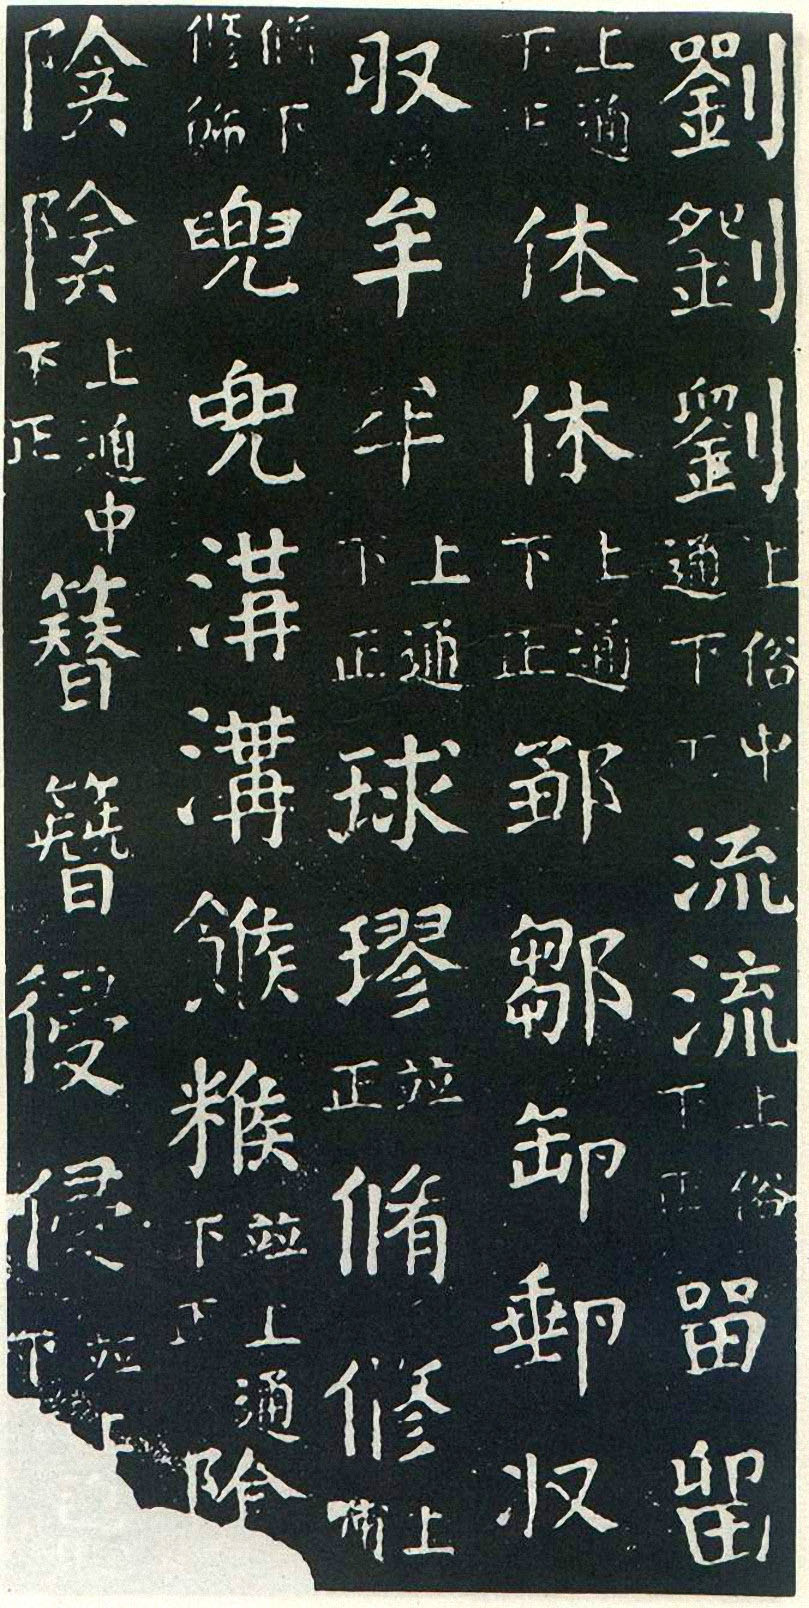 劉劉劉上俗中通下正流流上俗下正畱留
上通下正休休上通下正鄒鄒卸郵収
収牟牟上通下正球璆並正脩修上脯
脩下修飾兜兜溝溝餱糇並上通下正陰
陰陰上通中下正簪簪侵侵並上下